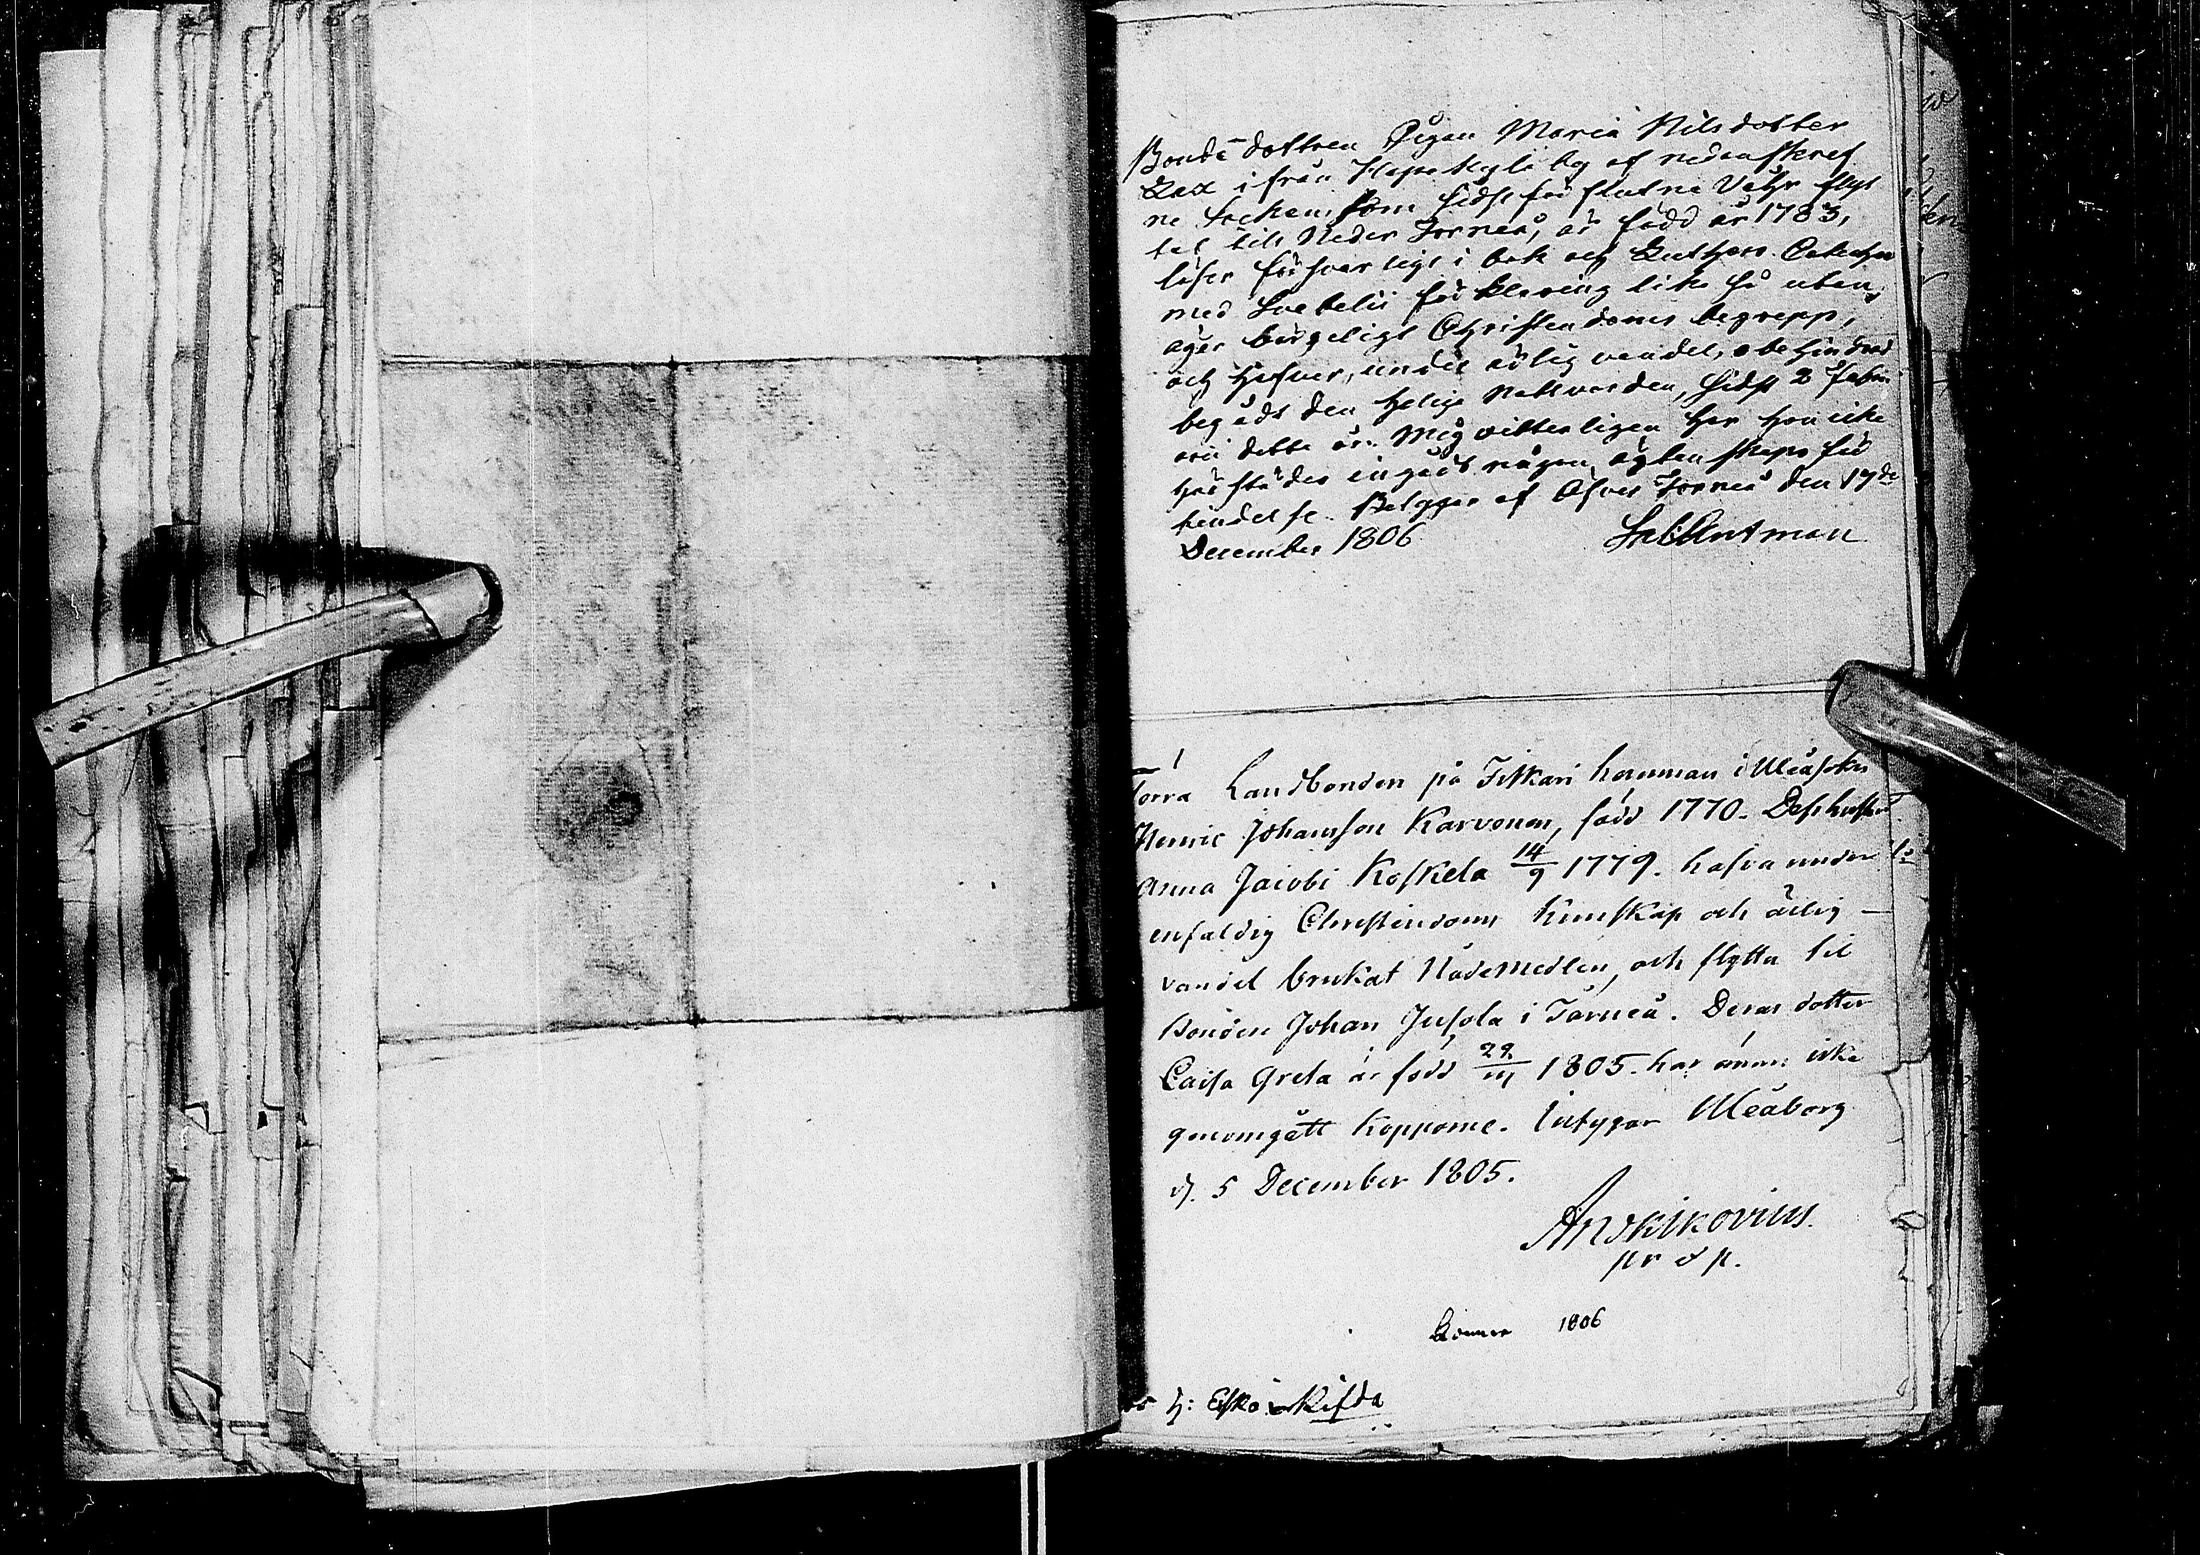 Bonde dottren Pigan Maria Nilsdotter
Zax ifrån Hapa Kylä by af nedanskref
ne Socken, som sidst förflutne Vår flyt
tat till Neder Torneå, är född år 1783,
läser försvarligt i bok och Luthers Cateches
med Svebelii förklaring lika så utan,
äger bergeligt Christendoms begrepp,
och hafver, under ärlig vandel, obehindrad
begådt den Helige Nattvarden, sidst 2 Febru
arii detta år. Mig vitterligen har hon icke
härstädes ingådt någon ägtenskaps för
bindelse. Betygar af Öfver Torneå den 17de
December 1806
Förra Landbonden på Hemman i Uleå Sokn
Henric Johansson Karvonen, född 1770. Dess hustru
Anna Jacobi Koskela 14/9 1779. hafva under
enfaldig Christendoms Kunskap och ärlig –
vandel brukat Nådemedlen, och flytta til
Bonden Johan Jusola i Torneå. Deras dotter
Caisa Greta är född 29/ 1805. har ännu icke
genomgått Kopporne. Intygar Uleåborg
d. 5 December 1805.
1806